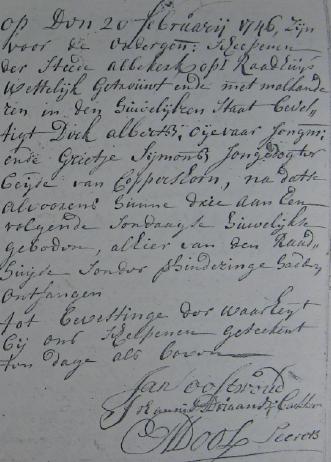 op Den 20 februarij 1746, Zijn
voor de ondergen: Schepenen
der Stede Abbekerk opt Raadhuijs
Wettelijk Getrouwt ende met malkande
ren in den Huwelijken Staat beves„
tigt Dirk Alberts: Oijevaar Jongm:
ende Grietje Sijmons Jongedogter
beijde van Opperdoes, na datse
alvoorens hunne drie aan Een
volgende Sondaagse Huwelijkse
geboden, alhier van den Raad„
huijse Sonder Verhinderinge hadden
ontfangen
tot bevestinge der waarheijt
bij ons Schepenen geteekent
ten dage als boven
Jan
Secrets